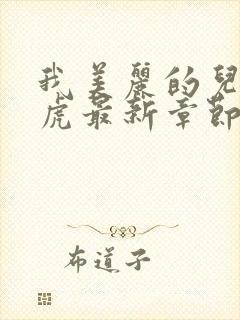 我美麗的兒
虎最新章節
布道子